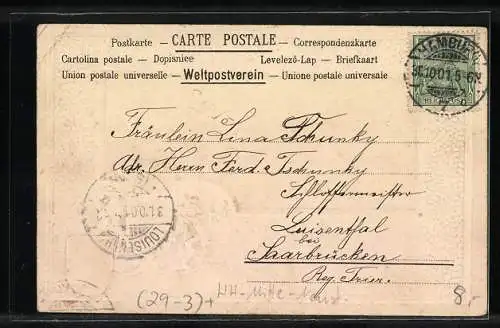 Postkarte — CARTE POSTALE — Correspondenzkarte
Cartolina postale — Dopisnice Levelező-Lap — Briefkaart
Union postale universelle — Weltpostverein — Unione postale universale
HAMBURG
30.10.01. 5-6 N.
1
Fräulein Lina Tschunky
Adr. Herrn Ferd. Tschunky
Schlossermeister
Luisenthal
bei
Saarbrücken
Reg. Trier.
31.10.01
LOUISENTHAL
(29-3)+ HH-Mitte-
8.-